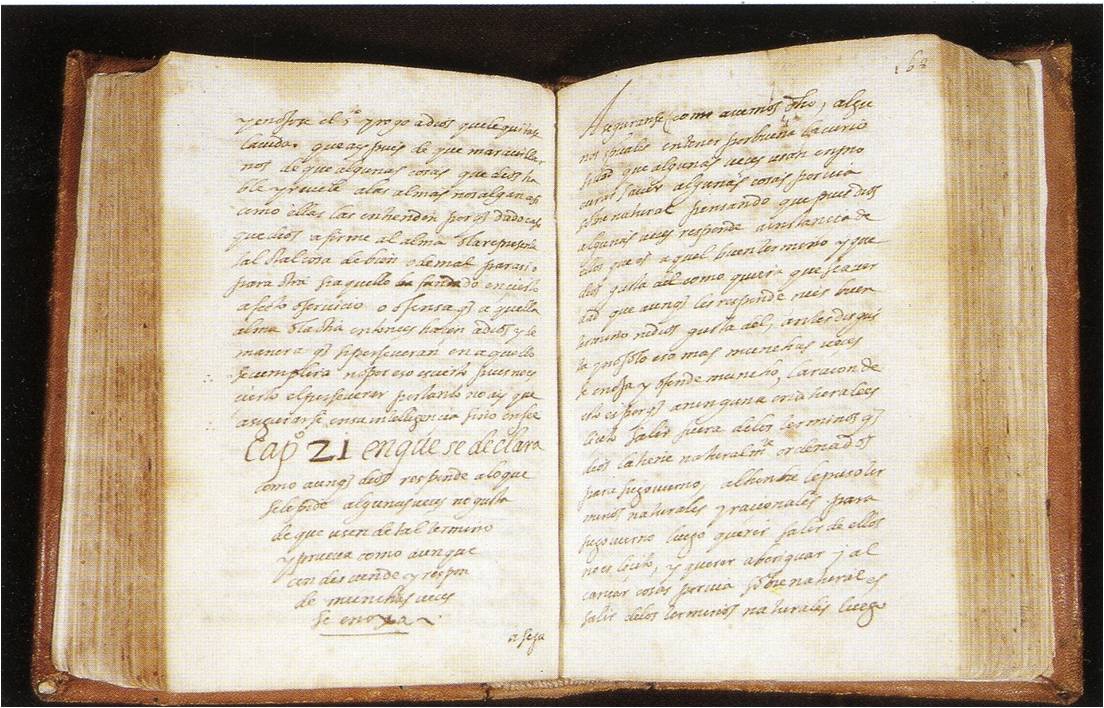 y enojose el s.to y rogo a dios que le quitase
la vida. que ay pues de que marauillar
nos de que algunas cosas que dios ha
ble y reuele a las almas no salgan asi
como ellas las entienden porq dado caso
que dios afirme al alma o la represente
tal o tal cosa de bien o de mal para si o
para otra si aquello ba fundado en cierto
afecto o seruicio o ofensa q aquella
alma o la otra entonces hacen a dios y de
manera q si perseueran en aquello
se cumplira no por eso es cierto pues no es
cierto el perseuerar por tanto no ay que
asegurarse en su inteligencia sino en fee
Cap.o 21 en que se declara
como aunq dios responde a lo que
se le pide algunas veces no gusta
de que usen de tal termino
y prueua como aunque
condesciende y respon
de munchas veces
se enoxa
asegu
168
Aseguranse como auemos dho, algu
nos spuales en tener por buena la curio
sidad que algunas veces usan en pro
curar sauer algunas cosas por via
sobrenatural pensando que pues dios
algunas veces responde a instancia de
ellos que es aquel buen termino y que
dios gusta del como quiera que sea ver
dad que aunq les responde ni es buen
termino ni dios gusta del, antes disgus
ta y no solo eso mas munchas veces
se enoja y ofende muncho, la raçon de
esto es porq a ninguna criatura le es
licito salir fuera de los terminos q
dios la tiene naturalm.te ordenados
para su gouierno, al hombre le puso ter
minos naturales y racionales para
su gouierno luego querer salir de ellos
no es licito, y querer aberiguar y al
cançar cosas por via sobrenatural es
salir de los terminos naturales luego